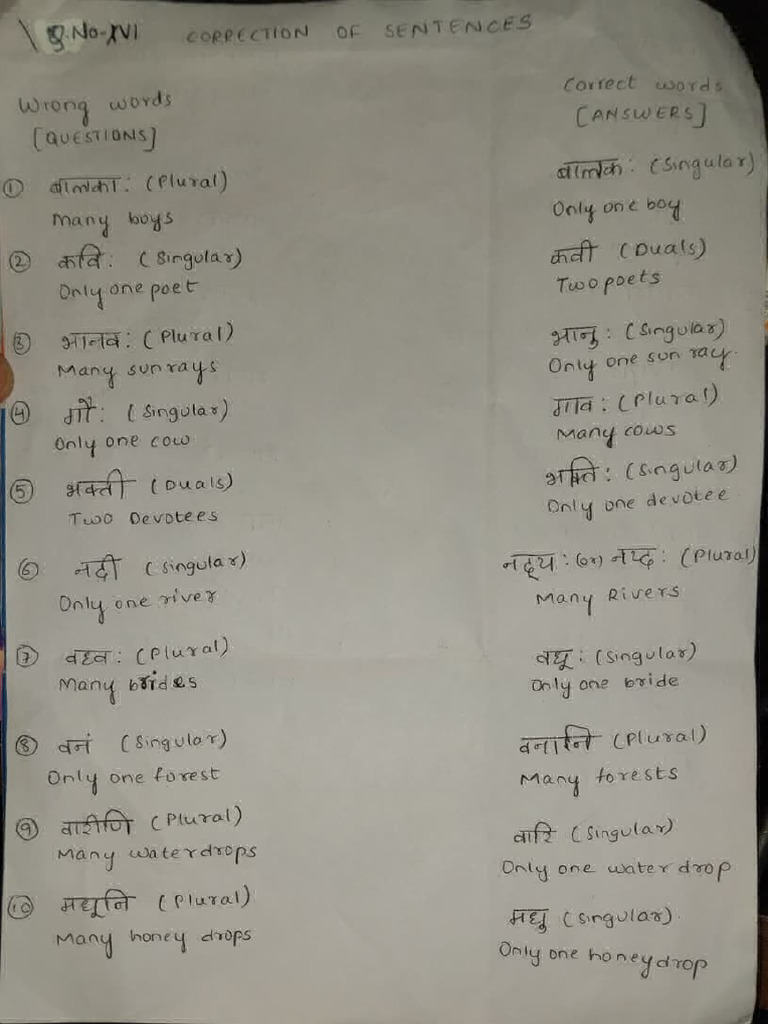 Q.No-XVI CORRECTION OF SENTENCES
Wrong words
[QUESTIONS]
Correct words
[ANSWERS]
① बालका: (Plural) बालक: (Singular)
Many boys Only one boy
② कवि: (Singular) कवी (Duals)
Only one poet Two poets
③ भानव: (Plural) भानु: (Singular)
Many sunrays Only one sun ray.
④ गौ: (Singular) गाव: (Plural)
Only one cow Many cows
⑤ भक्ती (Duals) भक्ति: (Singular)
Two Devotees Only one devotee
⑥ नदी (Singular) नद्य: (or) नद्य: (Plural)
Only one river Many Rivers
⑦ वहव: (Plural) वधू: (Singular)
Many brides Only one bride
⑧ वनं (Singular) वनानि (Plural)
Only one forest Many forests
⑨ वारीणि (Plural) वारि (Singular)
Many waterdrops Only one water drop
⑩ मधूनि (Plural) मधु (Singular).
Many honey drops Only one honeydrop